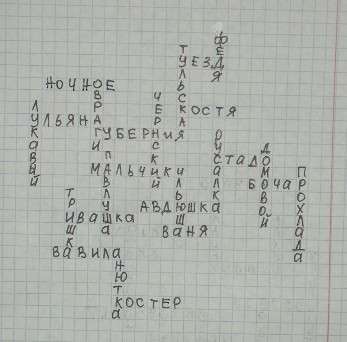 ФЕДЯ
ТУЛЬСКАЯ
УЕЗД
НОЧНОЕ
ОВРАГ
ЧЕРНСКИЙ
КОСТЯ
ЛУКАВЫЙ
УЛЬЯНА
ГУБЕРНИЯ
РУСАЛКА
ПАВЛУША
СТАДО
ДОМОВОЙ
МАЛЬЧИКИ
ИЛЬЮША
БОЧАР
ПРОХЛАДА
ТРИШКА
АВДЮШКА
ИВАШКА
ВАНЯ
ВАВИЛА
АНЮТКА
КОСТЕР